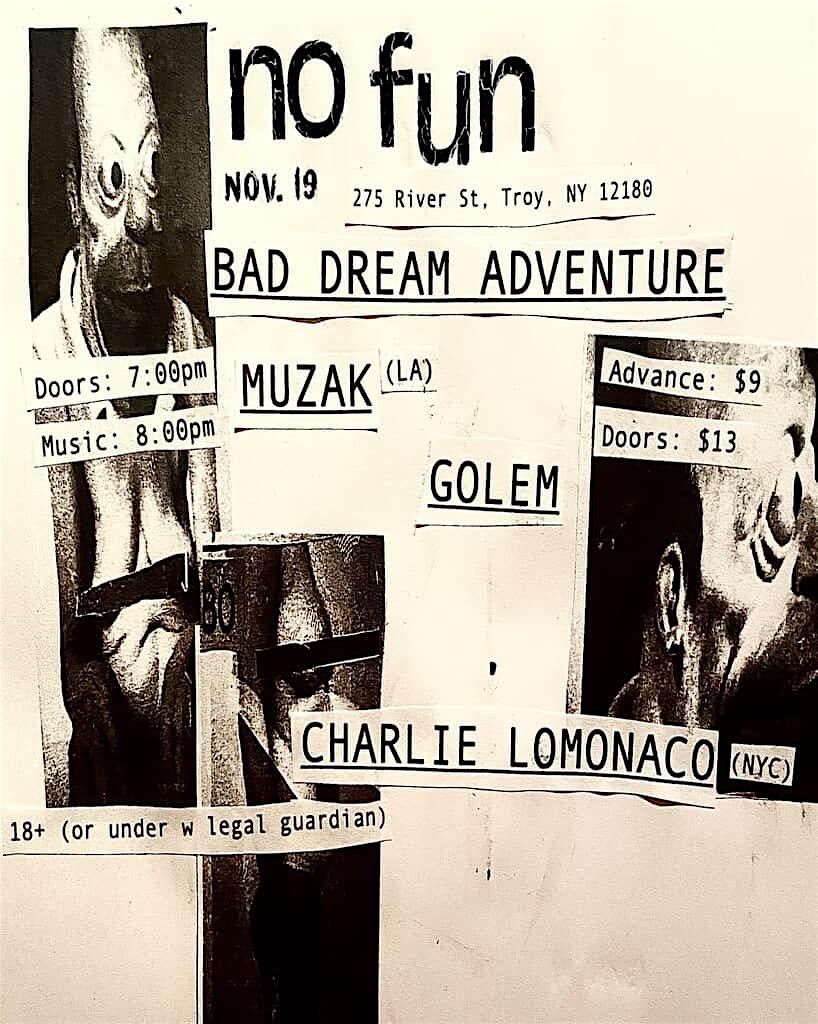 no fun
NOV. 19
275 River St, Troy, NY 12180
BAD DREAM ADVENTURE
Doors: 7:00pm
MUZAK (LA)
Advance: $9
Music: 8:00pm
Doors: $13
GOLEM
BO
CHARLIE LOMONACO (NYC)
18+ (or under w legal guardian)